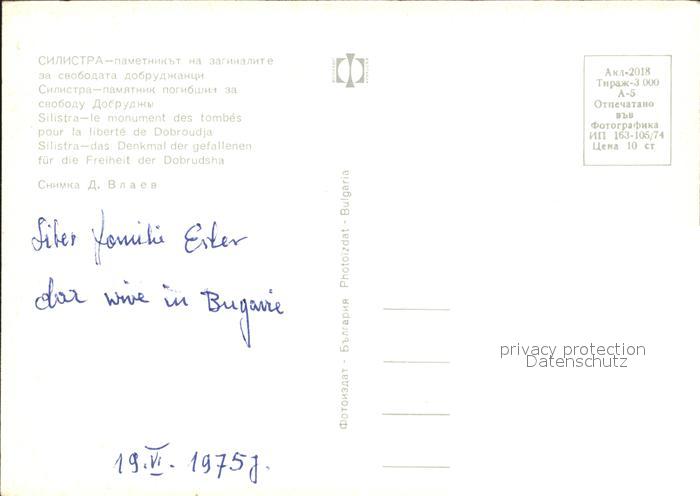 СИЛИСТРА—паметникът на загиналите
за свободата добруджанци
Силистра—памятник погибшим за
свободу Добруджы
Silistra—le monument des tombés
pour la liberté de Dobroudja
Silistra—das Denkmal der gefallenen
für die Freiheit der Dobrudsha
Снимка Д. Влаев
Liber familie Ester
dar wive in Bugarie
19.VI. 1975j.
Фотоиздат - България Photoizdat - Bulgaria
Акл-2018
Тираж-3 000
А-5
Отпечатано
във
Фотографика
ИП 163-105/74
Цена 10 ст
privacy protection
Datenschutz